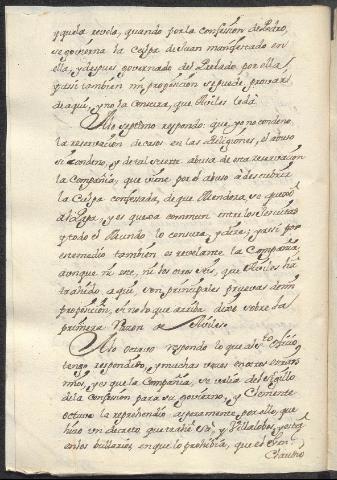 y que la revela, quando por la confession de Pedro,
se govierna la culpa de Juan manifestada en
ella, y despues governado del Prelado por ella
y assi tambien mi proposicion se puede provar
de aqui, y no la censura, que Aviles le dà.
Alo septimo respondo: que yo no condeno
la reservacion de casos en las Religiones, el abuso
si condeno, y de tal suerte abusa de esta reservacion
la Compañia, que viene por el abuso à descubrir
la culpa confessada, de que Mendoza se quexò
al Papa, y es quexa commun entre los Jesuitas
y todo el Mundo lo censura, y dize; y assi por
este medio tambien es revelante la Compañia
aunque ni este, ni los otros seis, que Aviles ha
trahido aqui, son principales pruevas de mi
proposicion, sino lo que arriba dixe sobre la
primera Razon de Aviles.
Alo octavo respondo lo que al Sto Oficio
tengo respondido, y muchas vezes en otros escritos
mios, y es que la Compañia, se valia del sigillo
de la confession para su govierno, y Clemente
octavo la reprehendiò asperamente por ello, que
hizo un decreto que trahe Sà, y Villalobos, y està
en los bullarios, en que lo prohibia, que el Gen
Claudio